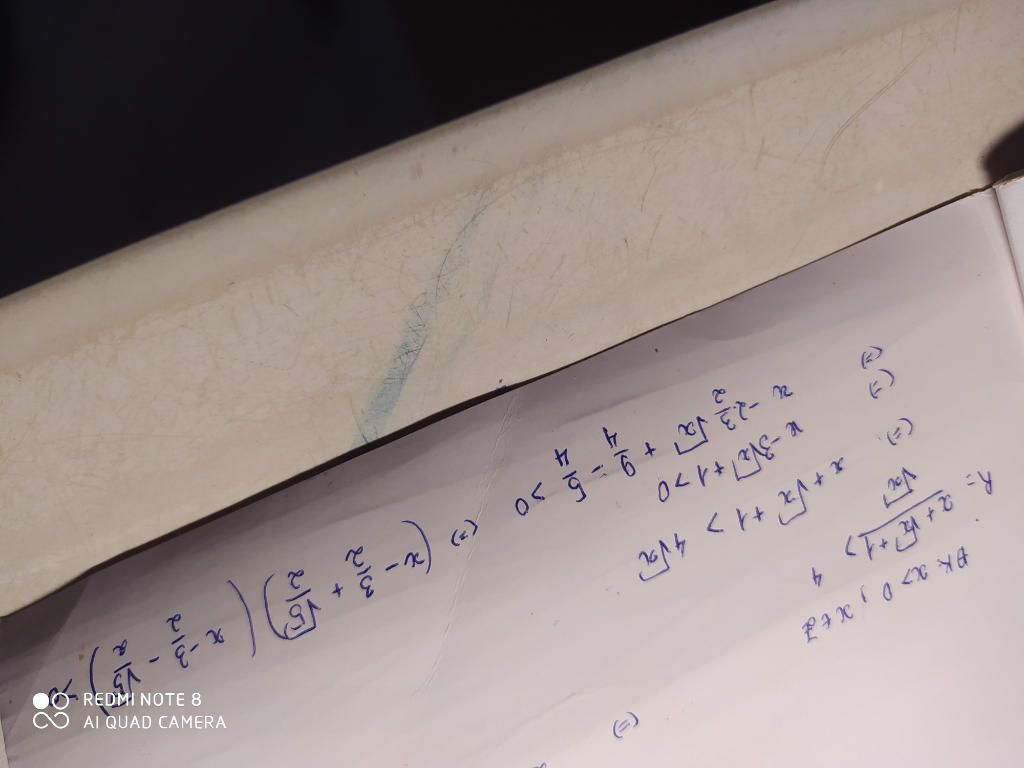 ĐK x > 0, x ≠ 1
A = x + √x + 1 / √x > 4
(=) x + √x + 1 > 4√x
(=) x - 3√x + 1 > 0
(=) x - 2 3/2 √x + 9/4 - 5/4 > 0
(=) (x - 3/2 + √5/2) (x - 3/2 - √5/2) > 0
(=)
REDMI NOTE 8
AI QUAD CAMERA